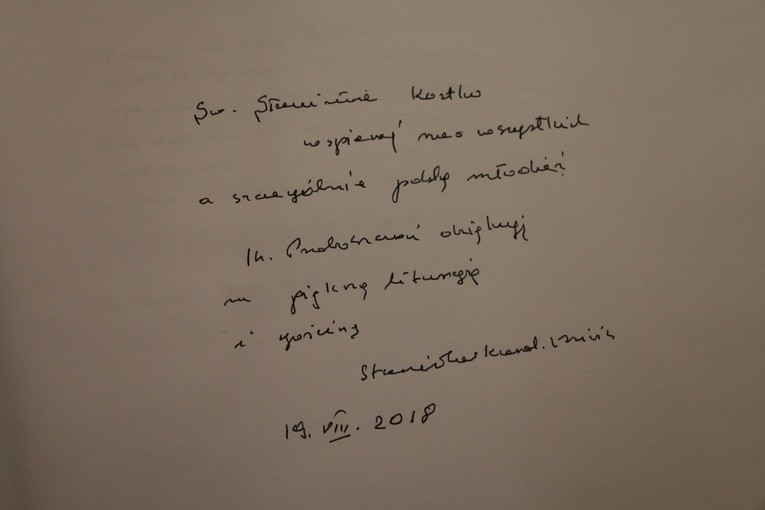 Św. Stanisławie Kostko
wspieraj nas wszystkich
a szczególnie polską młodzież
Ks. Proboszczowi dziękuję
za piękną liturgię
i gościnę
Stanisław Kard. Dziwisz
19. VIII. 2018